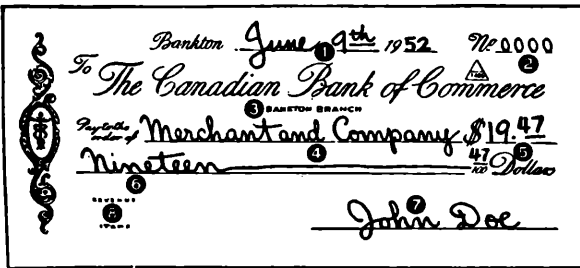 Bankton June 9th 1952 No 0000
1 2
To The Canadian Bank of Commerce
3 BANKTON BRANCH
Pay to the order of Merchant and Company $19.47
4 5
Nineteen 47/100 Dollars
6
REVENUE
8
STAMP
7
John Doe